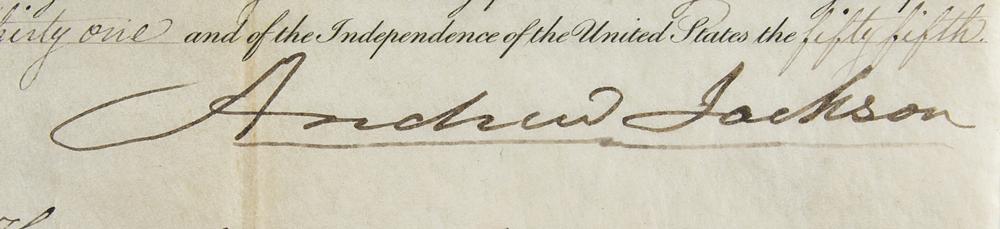 thirty one and of the Independence of the United States the fifty fifth.
Andrew Jackson